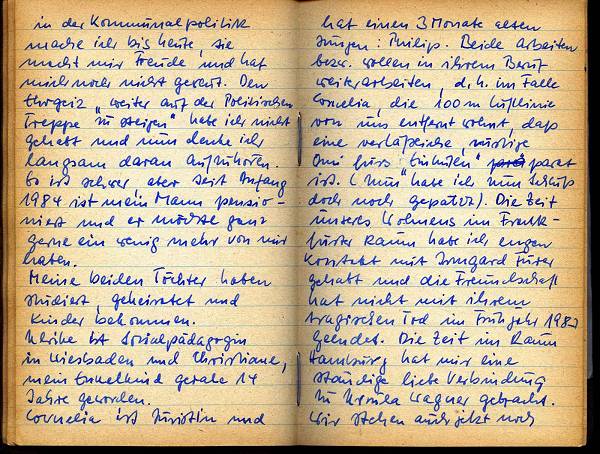 in der Kommunalpolitik
mache ich bis heute, sie
macht mir Freude und hat
mich noch nicht gereut. Den
Ehrgeiz "weiter auf der Politischen
Treppe zu steigen" habe ich nicht
gehabt und nun denke ich
langsam daran aufzuhören.
Es ist schwer, aber seit Anfang
1984 ist mein Mann pensio-
niert und er möchte ganz
gerne ein wenig mehr von mir
haben.
Meine beiden Töchter haben
studiert, geheiratet und
Kinder bekommen.
Ulrike ist Sozialpädagogin
in Wiesbaden und Christiane,
mein Enkelkind gerade 14
Jahre geworden.
Cornelia ist Juristin und
hat einen 3 Monate alten
Jungen: Philip. Beide arbeiten
bzw. wollen in ihrem Beruf
weiterarbeiten, d.h. im Falle
Cornelia, die 100 m Luftlinie
von uns entfernt wohnt, daß
eine verläßliche, rüstige
Omi fürs "Einhüten" parat
ist. (Nun habe ich zum Schluß
doch noch gepatzt). Die Zeit
unseres Wohnens im Frank-
furter Raum habe ich engen
Kontakt mit Irmgard
gehabt und die Freundschaft
hat nicht mit ihrem
tragischen Tod im Frühjahr 1982
geendet. Die Zeit im Raum
Hamburg hat mir eine
ständige liebe Verbindung
zu Ursula Wagner gebracht.
Wir stehen auch jetzt noch